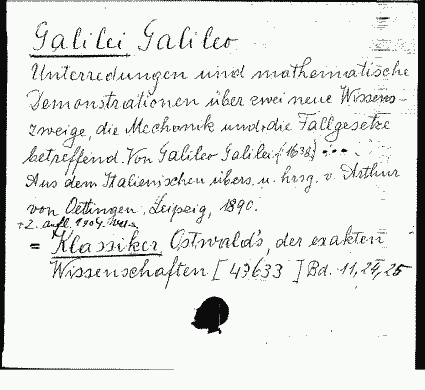 Galilei Galileo
Unterredungen und mathematische
Demonstrationen über zwei neue Wissens-
zweige, die Mechanik und die Fallgesetze
betreffend. Von Galileo Galilei (1638) ...
Aus dem Italienischen übers. u. hrsg. v. Arthur
von Oettingen, Leipzig, 1890.
+ 2. Aufl. 1904.
= Klassiker Ostwald's, der exakten
Wissenschaften [49633] Bd. 11, 24, 25